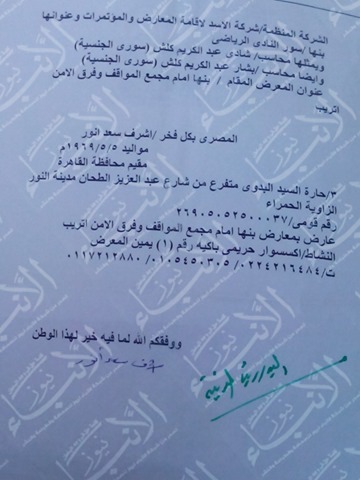 الشركة المنظمة/شركة الاسد لاقامة المعارض والمؤتمرات وعنوانها
بنها/سور النادى الرياضى
ويمثلها محاسب/ شادى عبد الكريم كلش (سورى الجنسية)
وايضا محاسب /بشار عبد الكريم كلش (سورى الجنسية)
عنوان المعرض المقام / بنها امام مجمع المواقف وفرق الامن
اتريب
المصرى بكل فخر /اشرف سعد انور
مواليد ١٩٦٩/٥/٥م
مقيم محافظة القاهرة
٣/حارة السيد البدوى متفرع من شارع عبد العزيز الطحان مدينة النور
الزاوية الحمراء
رقم قومى/٢٦٩٠٥٠٥٢٥٠٠٠٣٧
عارض بمعارض بنها امام مجمع المواقف وفرق الامن اتريب
النشاط/اكسسوار حريمى باكيه رقم (١) يمين المعرض
ت/٠٢٢٤٢١٦٤٨٤ /٠١٠٥٤٥٠٣٠٥ /٠١١٧٢١٢٨٨٠
ووفقكم الله لما فيه خير لهذا الوطن
اشرف سعد انور
الانباء